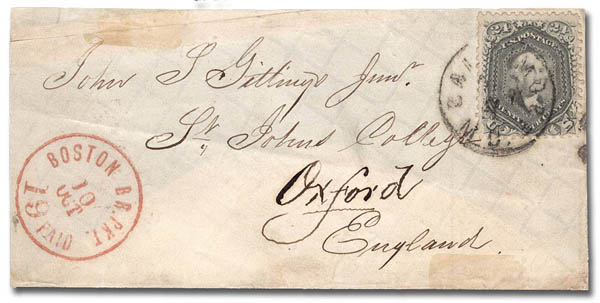 24 U.S. POSTAGE 24
John S Gittings Junr.
St. Johns College
Oxford
England.
BOSTON BR. PKT.
10
OCT
19 PAID